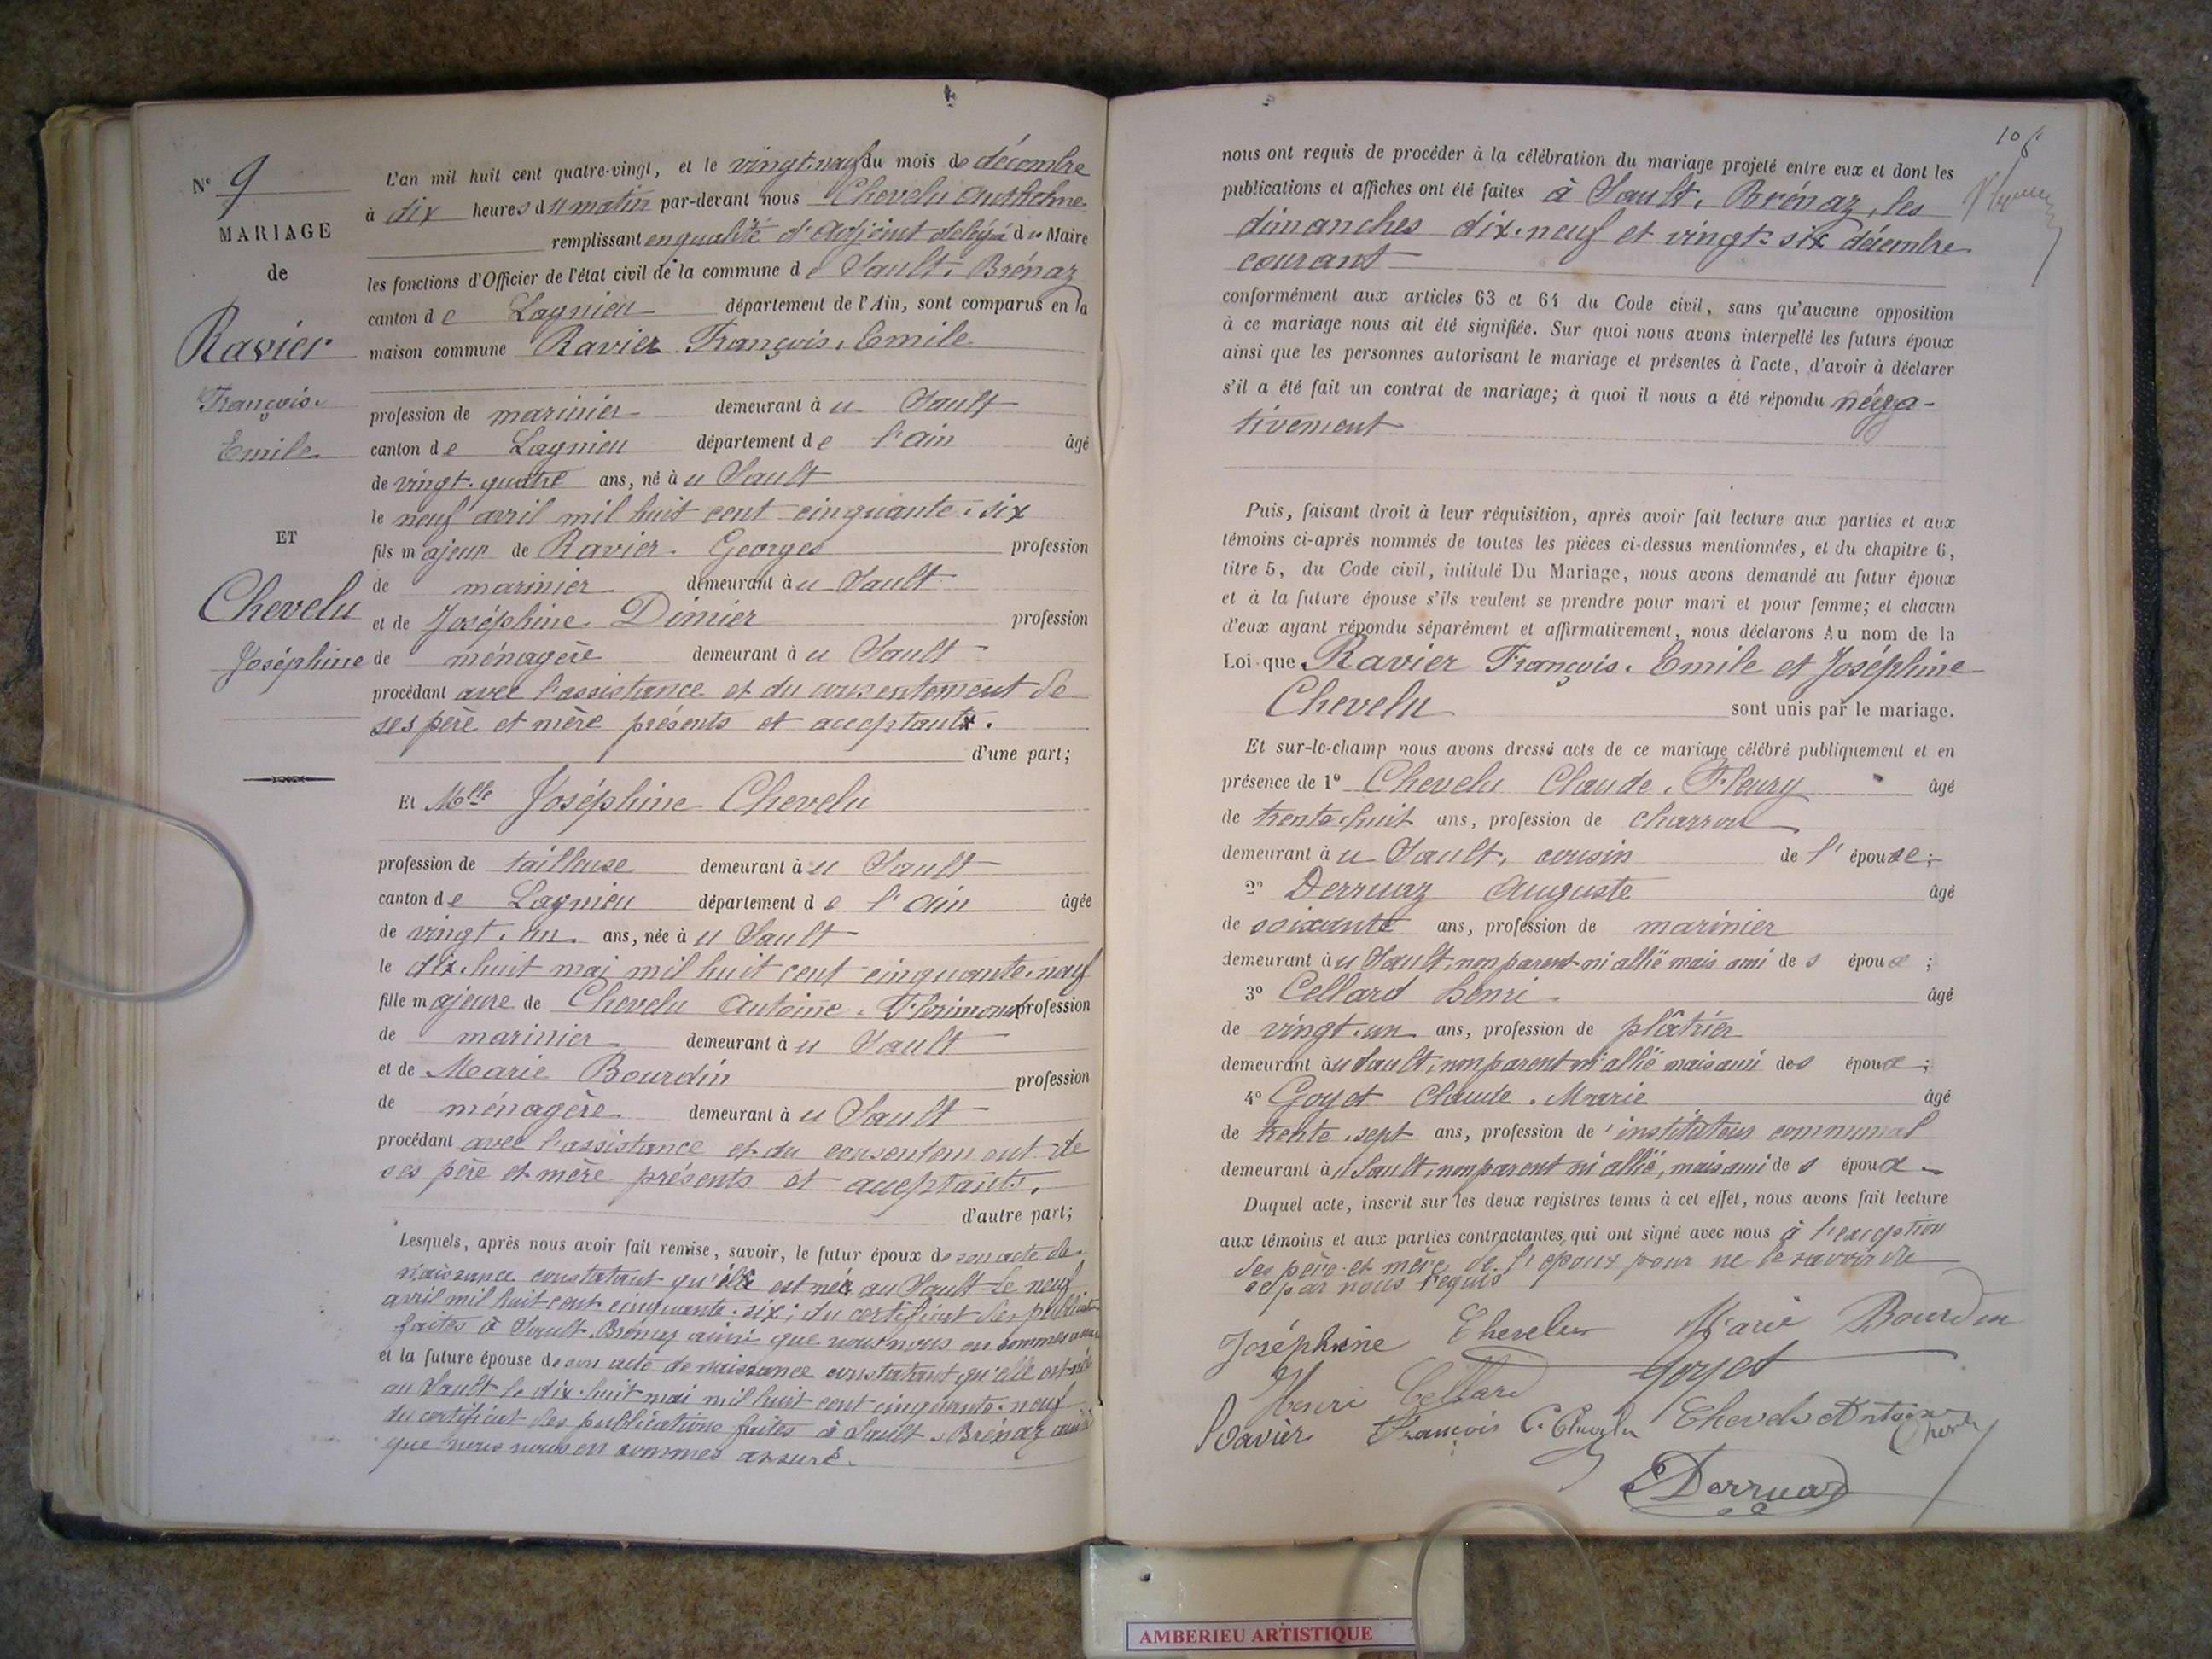 N° 9
MARIAGE
de
Ravier
François-
Emile
ET
Chevelu
Joséphine
L'an mil huit cent quatre-vingt, et le vingt-neuf du mois de décembre
à dix heures du matin par-devant nous Chevelu
remplissant en qualité d'adjoint délégué du Maire
les fonctions d'Officier de l'état civil de la commune de Sault-Brénaz
canton de Lagnieu département de l'Ain, sont comparus en la
maison commune Ravier François-Emile
profession de marinier demeurant à u Sault
canton de Lagnieu département de l'ain âgé
de vingt-quatre ans, né à u Sault
le neuf avril mil huit cent cinquante-six
fils majeur de Ravier Georges profession
de marinier demeurant à u Sault
et de Joséphine Dimier profession
de ménagère demeurant à u Sault
procédant avec l'assistance et du consentement de
ses père et mère présents et acceptants.
d'une part;
Et Mlle Joséphine Chevelu
profession de tailleuse demeurant à u Sault
canton de Lagnieu département de l'ain âgée
de vingt-un ans, née à u Sault
le dix-huit mai mil huit cent cinquante-neuf
fille majeure de Chevelu Antoine-Florimond profession
de marinier demeurant à u Sault
et de Marie Bourdin profession
de ménagère demeurant à u Sault
procédant avec l'assistance et du consentement de
ses père et mère présents et acceptants.
d'autre part;
Lesquels, après nous avoir fait remise, savoir, le futur époux de son acte de
naissance constatant qu'il est né au Sault le neuf
avril mil huit cent cinquante-six; du certificat des publications
faites à Sault-Brénaz ainsi que nous nous en sommes assuré
et la future épouse de son acte de naissance constatant qu'elle est née
au Sault le dix-huit mai mil huit cent cinquante-neuf
du certificat des publications faites à Sault-Brénaz ainsi
que nous nous en sommes assuré.
nous ont requis de procéder à la célébration du mariage projeté entre eux et dont les
publications et affiches ont été faites à Sault-Brénaz, les
dimanches dix-neuf et vingt-six décembre
courant
conformément aux articles 63 et 64 du Code civil, sans qu'aucune opposition
à ce mariage nous ait été signifiée. Sur quoi nous avons interpellé les futurs époux
ainsi que les personnes autorisant le mariage et présentes à l'acte, d'avoir à déclarer
s'il a été fait un contrat de mariage; à quoi il nous a été répondu néga-
tivement
Puis, faisant droit à leur réquisition, après avoir fait lecture aux parties et aux
témoins ci-après nommés de toutes les pièces ci-dessus mentionnées, et du chapitre 6,
titre 5, du Code civil, intitulé Du Mariage, nous avons demandé au futur époux
et à la future épouse s'ils veulent se prendre pour mari et pour femme; et chacun
d'eux ayant répondu séparément et affirmativement, nous déclarons Au nom de la
Loi que Ravier François-Emile et Joséphine
Chevelu sont unis par le mariage.
Et sur-le-champ nous avons dressé acte de ce mariage célébré publiquement et en
présence de 1° Chevelu Claude-Fleury âgé
de trente-huit ans, profession de charron
demeurant à u Sault, cousin de l'épouse;
2° Derruaz Auguste âgé
de soixante ans, profession de marinier
demeurant à u Sault, non parent ni allié mais ami des époux;
3° Cellard henri âgé
de vingt-un ans, profession de plâtrier
demeurant à u Sault, non parent ni allié mais ami des époux;
4° Goyet Claude-Marie âgé
de trente-sept ans, profession de instituteur communal
demeurant à u Sault, non parent ni allié, mais ami des époux
Duquel acte, inscrit sur les deux registres tenus à cet effet, nous avons fait lecture
aux témoins et aux parties contractantes, qui ont signé avec nous à l'exception
des père et mère de l'époux pour ne le savoir de
ce par nous requis
Joséphine Chevelu Marie Bourdin
Henri Cellard Goyet
Ravier François C. Chevelu Chevelu Antoine
Derruaz
AMBERIEU ARTISTIQUE